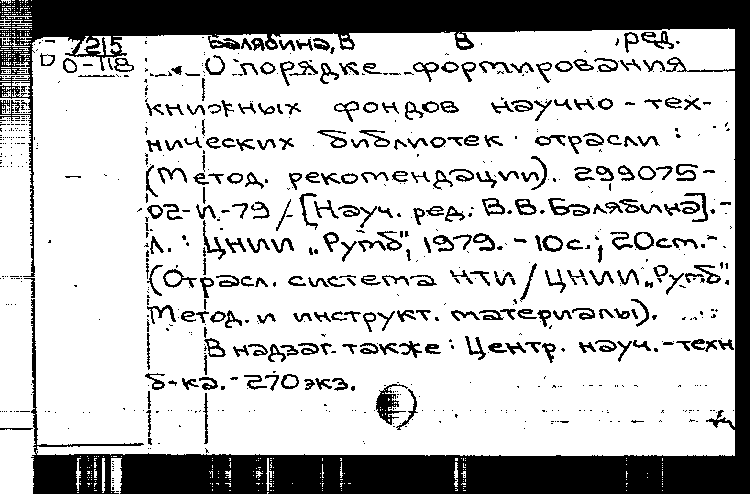 7215 Балябина, В В ,ред.
О-118 О порядке формирования
книжных фондов научно-тех-
нических библиотек отрасли :
(Метод. рекомендации). 299075-
02-И-79 / [Науч. ред. В.В.Балябина].-
Л. : ЦНИИ „Румб", 1979. - 10с.; 20см.-
(Отрасл. система НТИ / ЦНИИ „Румб".
Метод. и инструкт. материалы).
В надзаг. также : Центр. науч.-техн
б-ка.- 270экз.